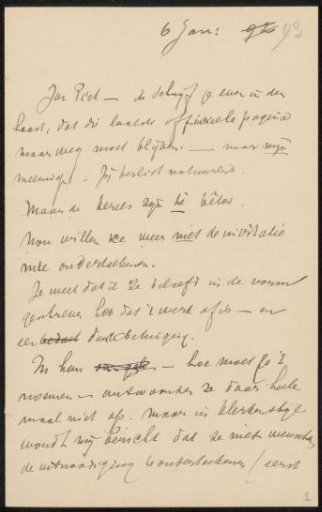 6 Jan: 93
Jan Piet — ik schrijf je even in der
haast, dat die laatste officieele pagina
maar weg moet blijven. — naar mijn
meening. Jij beslist natuurlijk.
Maar de kerels zijn te bête.
Nou willen ze weer niet de invitatie
mee onderteekenen.
Je weet dat ik ze beleefd in de vorm
geschreven heb dat 't werk af is — en
een dankbetuiging.
In hun — hoe moet je 't
noemen — antwoorden ze daar heele
maal niet op. maar in klerkenstijl
wordt mij bericht dat ze niet wenschen
de uitnoodiging te onderteekenen / eerst
1